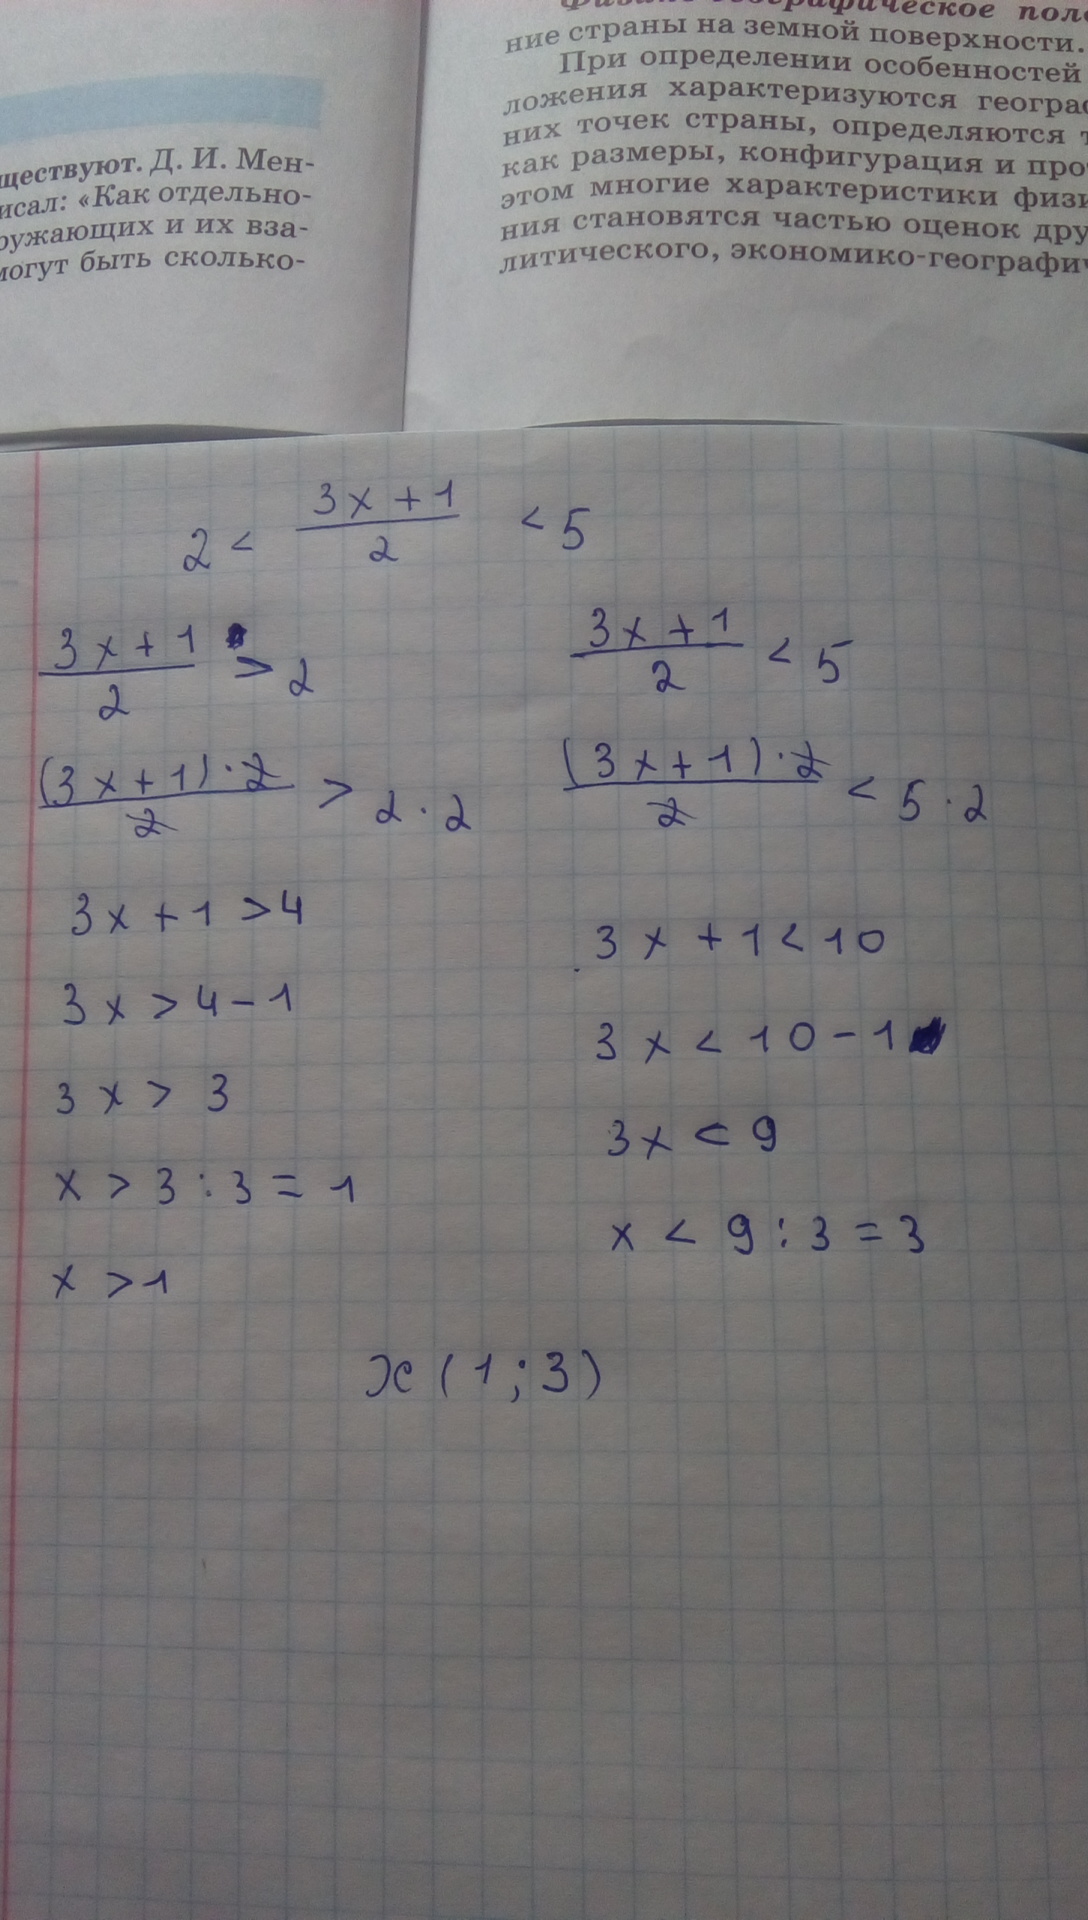 ществуют. Д. И. Мен-
исал: «Как отдельно-
ружающих и их вза-
могут быть сколько-
Физико-географическое поло
ние страны на земной поверхности.
При определении особенностей
ложения характеризуются геогра
них точек страны, определяются т
как размеры, конфигурация и про
этом многие характеристики физи
ния становятся частью оценок дру
литического, экономико-географич
2 < (3x + 1)/2 < 5
(3x + 1)/2 > 2
((3x + 1) · 2)/2 > 2 · 2
3x + 1 > 4
3x > 4 - 1
3x > 3
x > 3 : 3 = 1
x > 1
(3x + 1)/2 < 5
((3x + 1) · 2)/2 < 5 · 2
3x + 1 < 10
3x < 10 - 1
3x < 9
x < 9 : 3 = 3
x (1 ; 3)